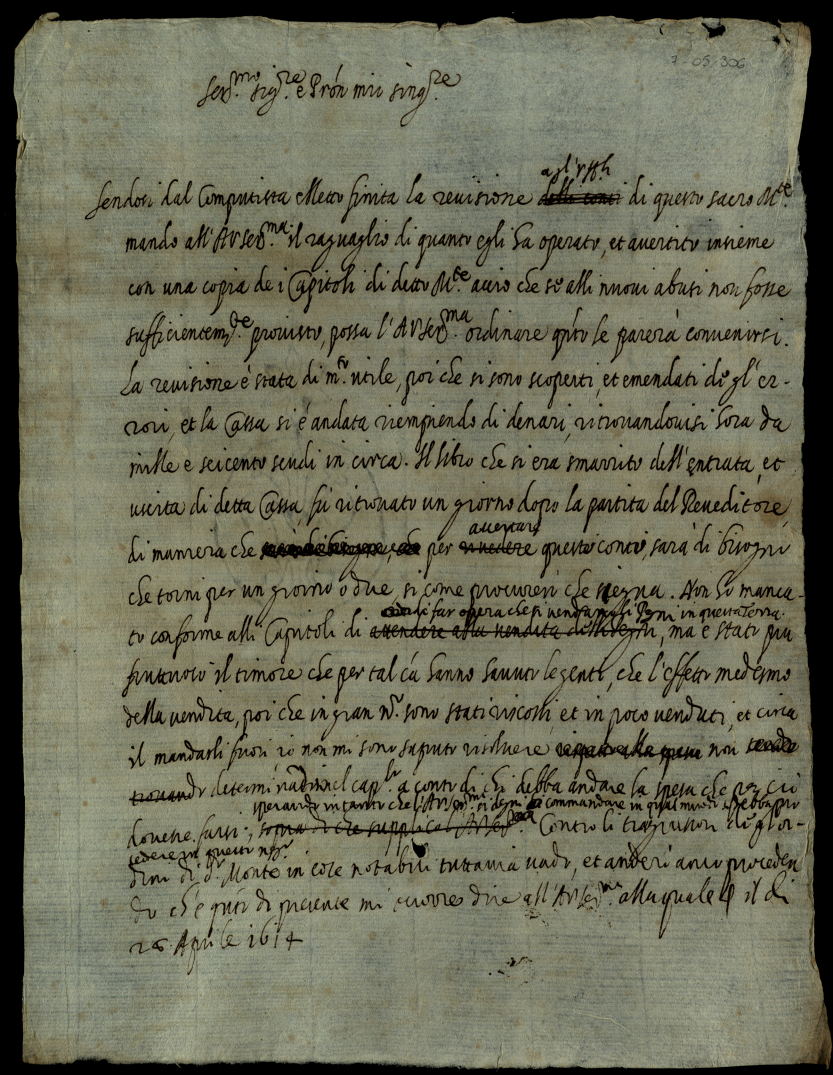 7.05.306
Ser.mo Sig.re e Prõn mio sing.re
agl'
Sendosi dal Computista Metto finita la revisione delli conti di questo sacro M.te
mando all'A V Ser.ma il raguaglio di quanto egli ha operato, et avertito insieme
con una copia de i Capitoli di detto M.te acciò che se alli nuovi abusi non fosse
sufficientem.te provisto, possa l'A V Ser.ma ordinare q̃to le parerà convenirsi.
La revisione è stata di m.to utile, poi che si sono scoperti, et emendati degl'er-
rori, et la Cassa si è andata riempiendo di denari, ritrovandovisi hora da
mille e seicento scudi in circa. Il libro che si era smarrito dell'entrata, et
uscita di detta Cassa, fu ritrovato un giorno dopo la partita del Reveditore,
avertare
di maniera che per rivedere questo conto, sarà di bisogno
che torni per un giorno o due, si come procurerò che vegna. Non ho manca-
di far opera che si vendano gli pegni in questa Terra
to conforme alli Capitoli di attendere alla vendita delli pegni, ma è stato più
fruttuoso il timore che per tal cã hanno havuto le genti, che l'effetto medesmo
della vendita, poi che in gran n.o sono stati riscossi, et in poco venduti, et circa
il mandarli fuori, io non mi sono saputo risolvere non
trovando determinato nel cap.lo a conto di chi debba andare la spesa che per ciò
sperando intanto che l'A V Ser.ma si degni commandare in qual modo si debba pro
dovesse farsi, sopra di che supplico l'A V Ser.ma Contro li trasgressori degl'or-
cedere in questo neg.o
dini di d.o Monte in cose notabili tuttavia vado, et anderò anco proceden
do che q̃to di presente mi occorre dire all'A V Ser.ma alla quale il dì
26 Aprile 1614